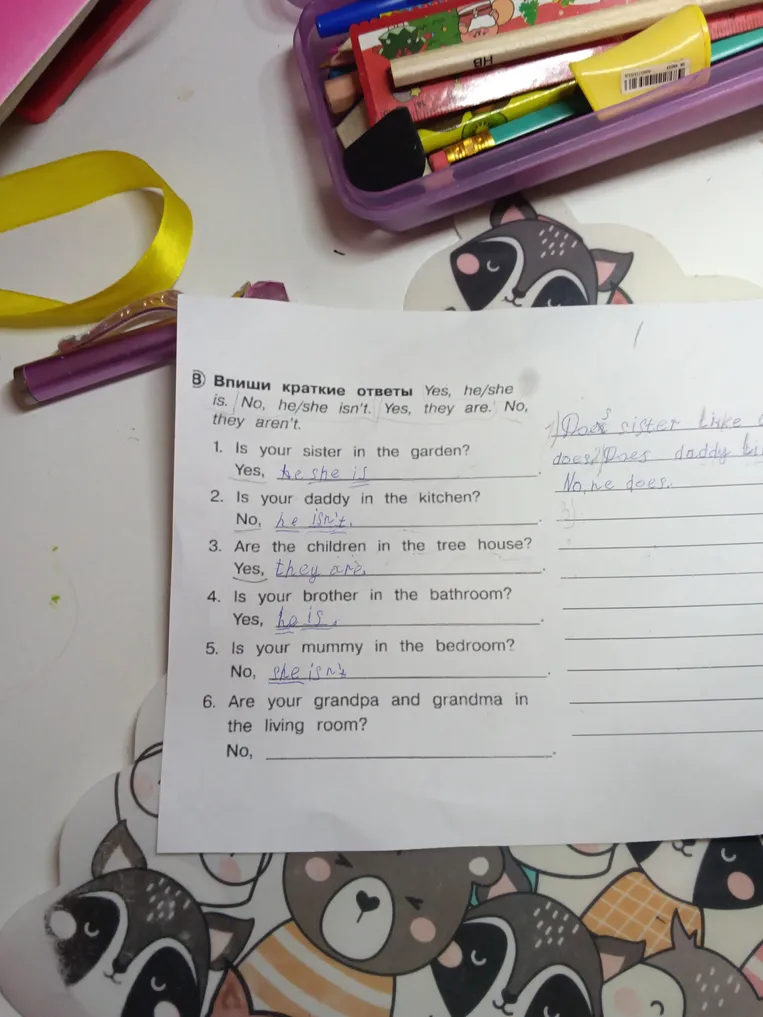 HB
В Впиши краткие ответы Yes, he/she
is. No, he/she isn't. Yes, they are. No,
they aren't.
1. Is your sister in the garden?
Yes, he she is.
2. Is your daddy in the kitchen?
No, he isn't.
3. Are the children in the tree house?
Yes, they are.
4. Is your brother in the bathroom?
Yes, he is.
5. Is your mummy in the bedroom?
No, she isn't.
6. Are your grandpa and grandma in
the living room?
No, .
1) Does sister like
does. Does daddy
No, he does.
3)